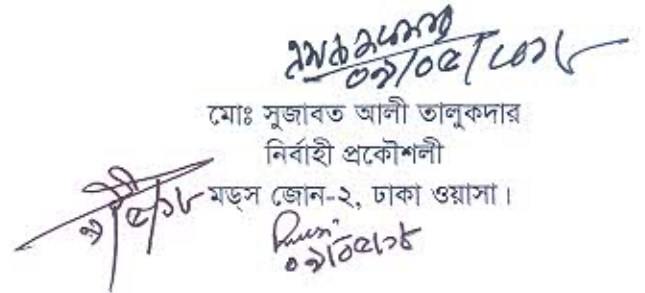 ০৯/০৫/২০১৮
মোঃ সুজাবত আলী তালুকদার
নির্বাহী প্রকৌশলী
মড্স জোন-২, ঢাকা ওয়াসা।
৯/৫/১৮
০৯/০৫/১৮